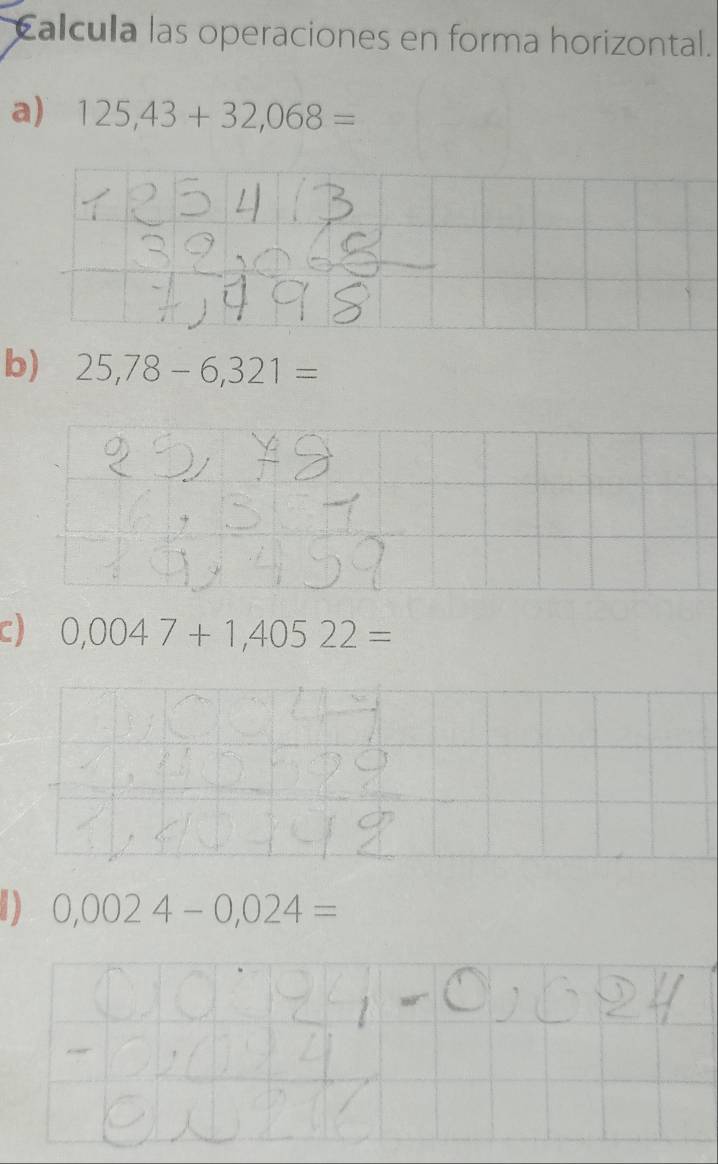 Calcula las operaciones en forma horizontal.
a) 125,43 + 32,068 =
125413
32,068
7,498
b) 25,78 – 6,321 =
25,78
6,321
19,459
c) 0,004 7 + 1,405 22 =
0,0047
1,40522
) 0,002 4 – 0,024 =
0,0024 - 0,024
- 0,024